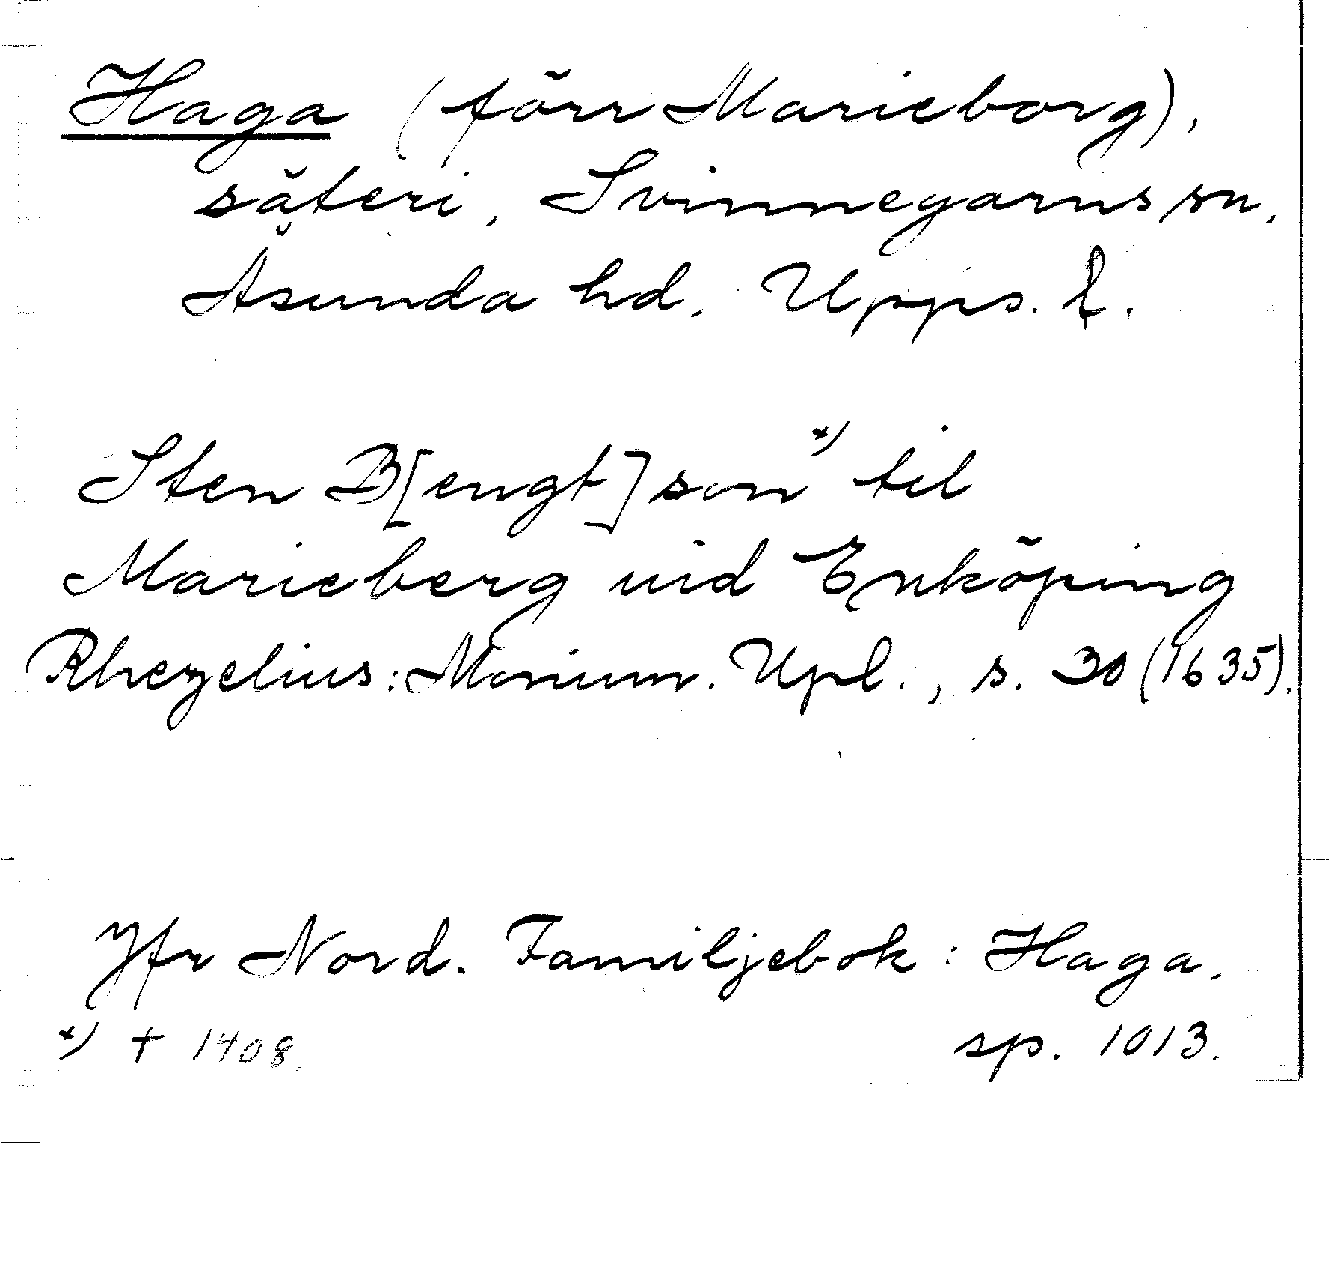 Haga (förr Marieborg),
säteri, Svinnegarns sn,
Åsunda hd, Upps. l.
Sten B[engt]son x) til
Marieberg uid Enköping
Rhezelius: Monum. Upl., s. 30 (1635).
Jfr Nord. Familjebok: Haga,
x) † 1408. sp. 1013.